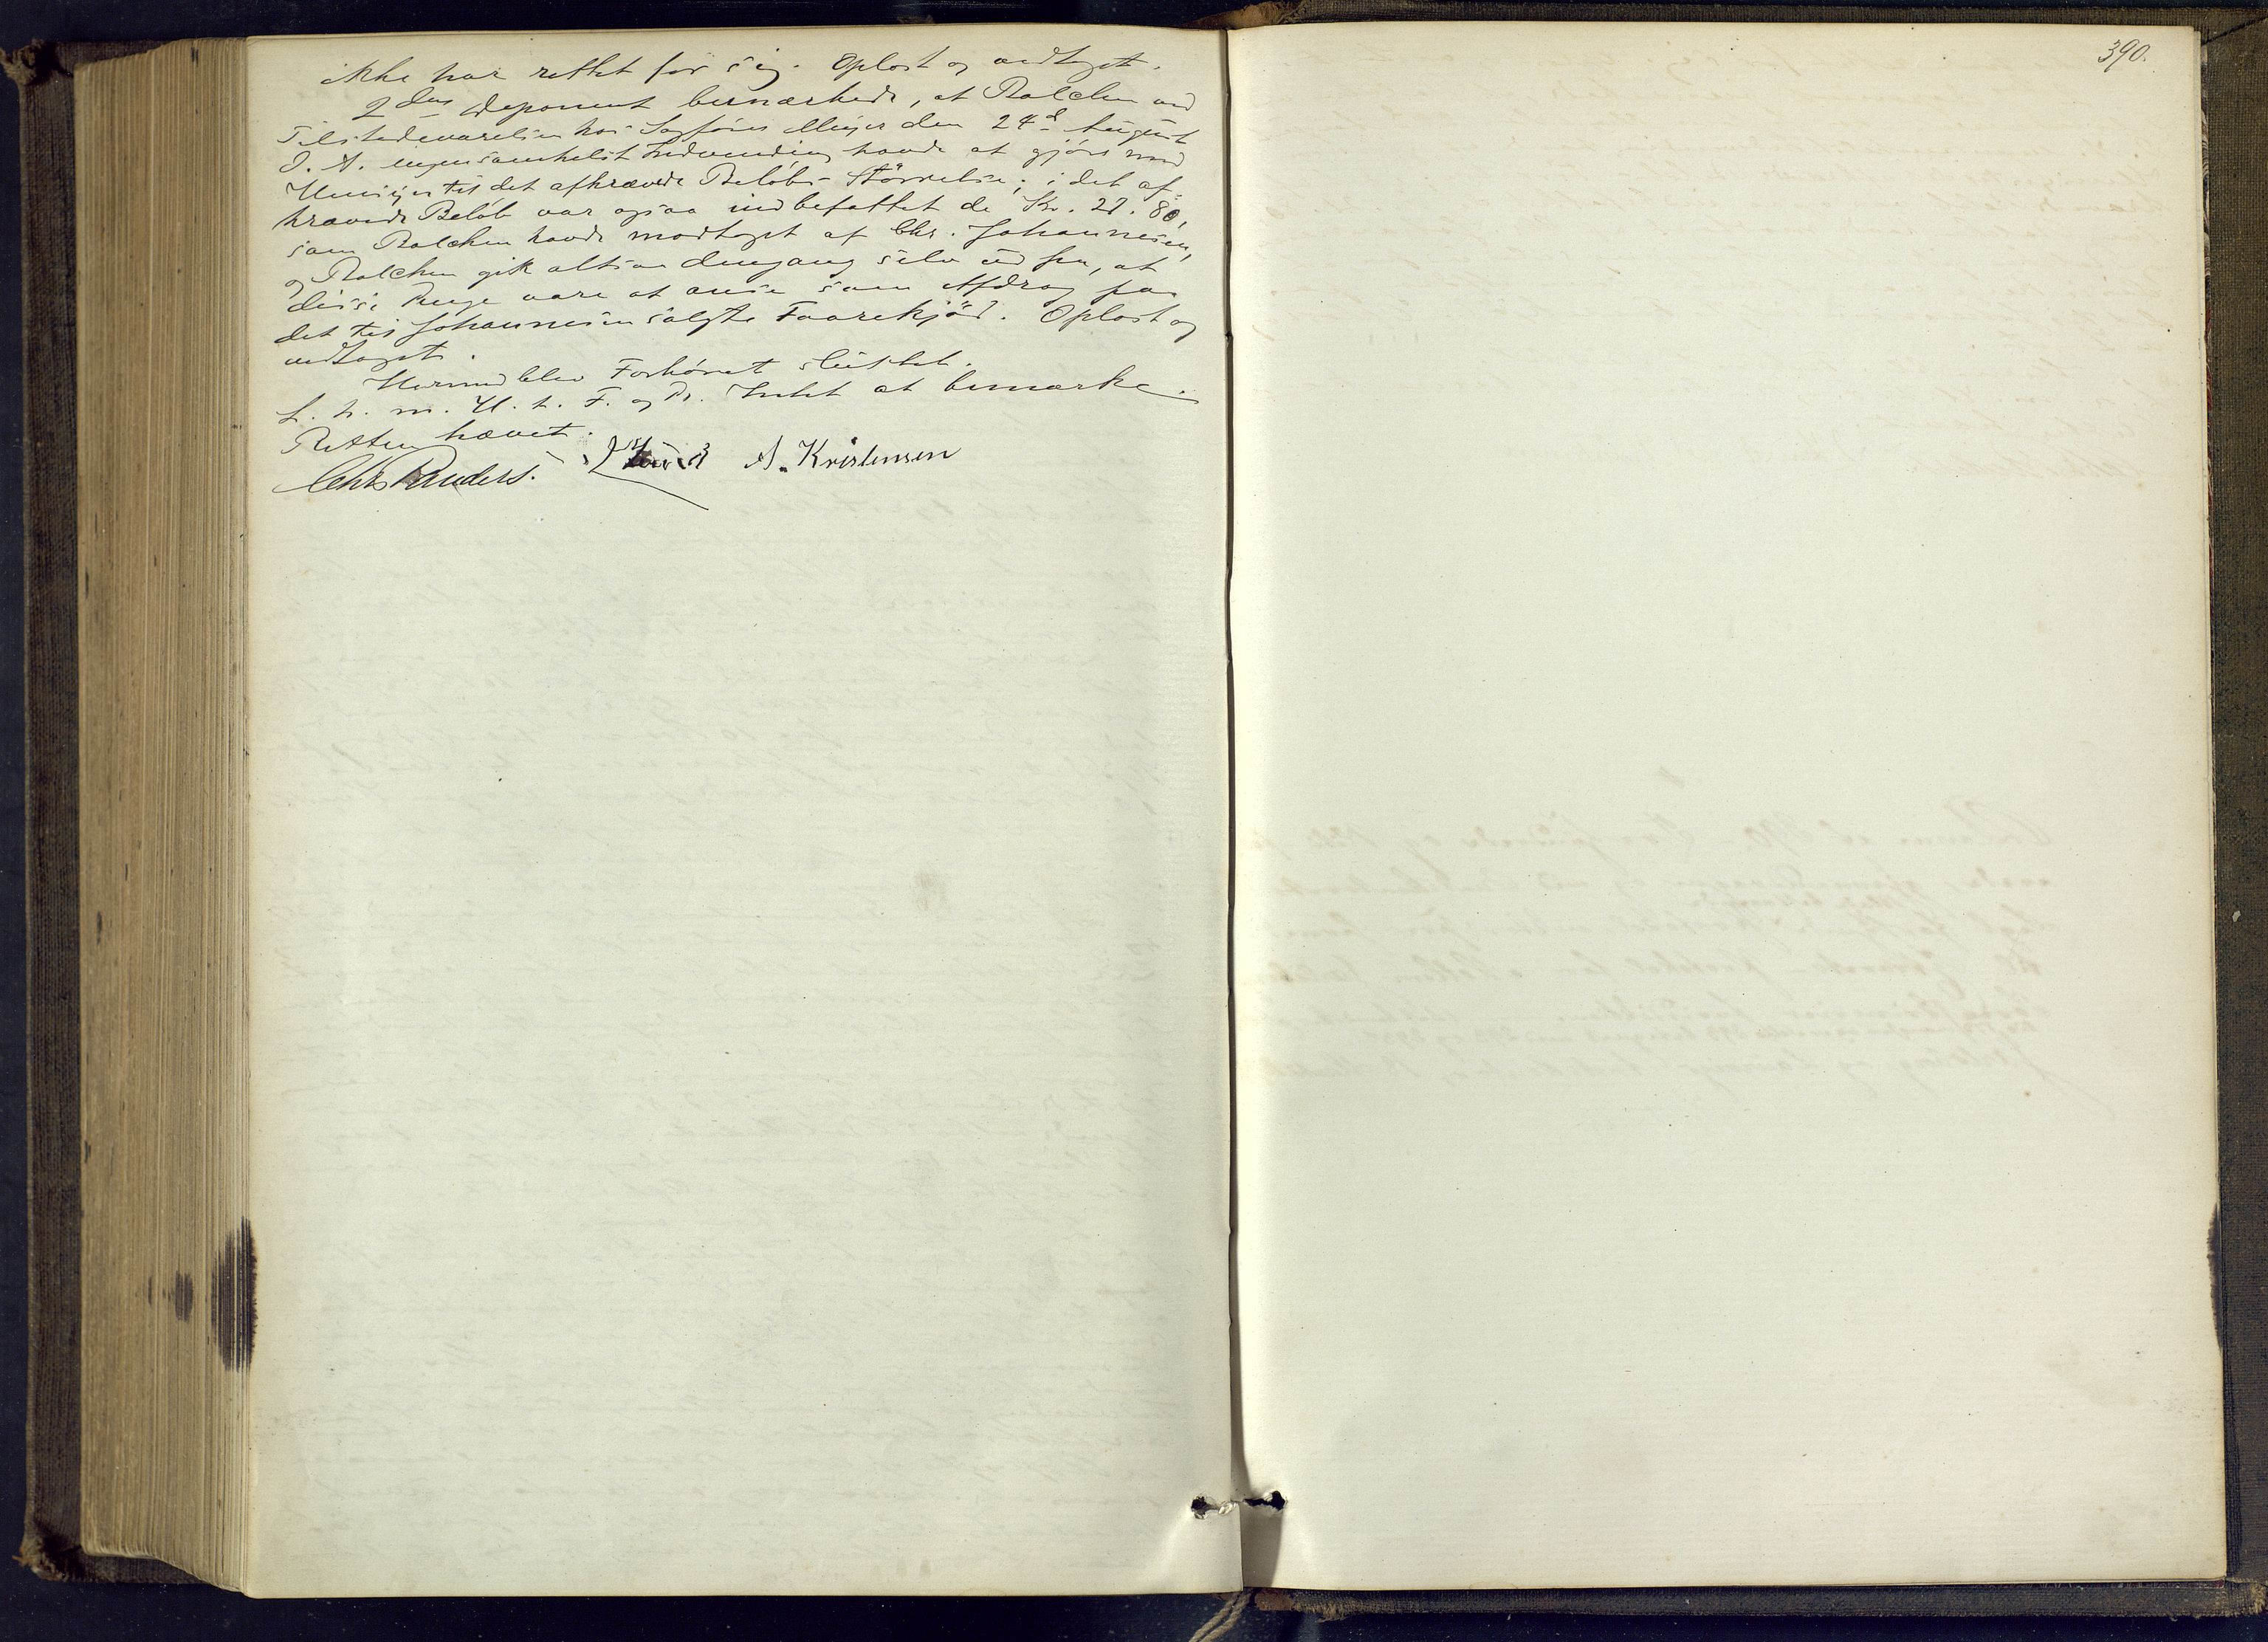 ikke har rettet for sig. Oplæst og vedtaget.
2den Deponent bemærkede, at Balchen ved
Tilstedeværelsen hos Sagfører Meyer den 24d August
d. A. ingensomhelst Indvending havde at gjöre med
Hensyn til det afkrævede Belöbs Störrelse; i det af-
krævede Belöb var ogsaa indbefattet de Kr. 27.80,
som Balchen havde modtaget af Chr. Johannesen,
og Balchen gik altsaa dengang selv ud fra, at
disse Penge vare at anse som Afdrag paa
det til Johannesen solgte Faarekjöd. Oplæst og
vedtaget.
Hermed blev Forhöret sluttet.
L. h. m. H. t. F. og Pr. Intet at bemærke.
Retten hævet.
Chr. Randers. A. Kristensen
390.